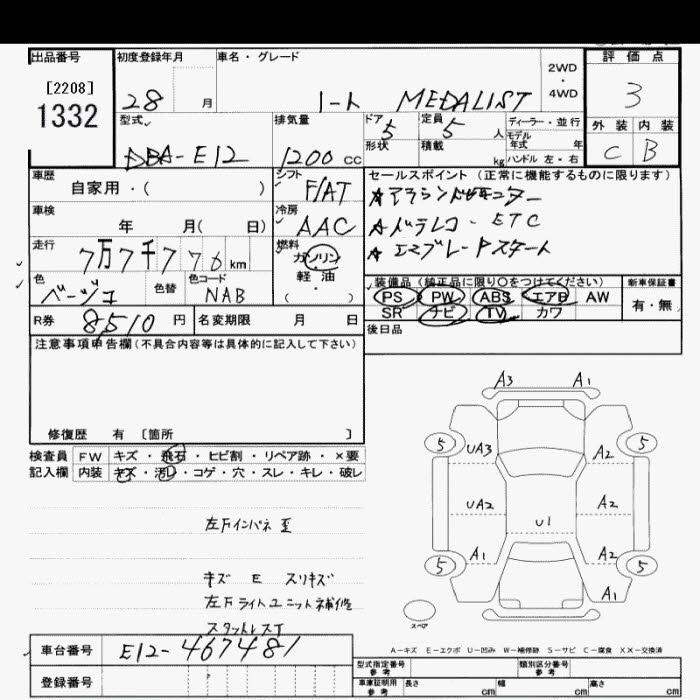 出品番号 初度登録年月 車名・グレード 評価点
[2208]
1332
28 月 ノート MEDALIST 2WD・4WD 3
型式 排気量 ドア 定員 ディーラー・並行 外装 内装
DBA-E12 1200 cc 5 5 人 モデル年式 年 C B
形状 積載 kg ハンドル 左・右
車歴 シフト セールスポイント (正常に機能するものに限ります)
自家用・( ) F/AT ☆アラウンドビューモニター
車検 冷房 ☆ドラレコ・ETC
年 月( 日) AAC ☆エマブレ・Pスタート
走行 燃料
7万7千776km ガソリン
色 色替 色コード 軽・油 装備品 (純正品に限り○をつけてください) 新車保証書
ベージュ NAB ( ) PS PW ABS エアB AW 有・無
SR ナビ TV カワ
R券 8510 円 名変期限 月 日 後日品
注意事項申告欄 (不具合内容等は具体的に記入して下さい)
修復歴 有 〔箇所 〕
検査員 FW キズ・飛石・ヒビ割・リペア跡・×要
記入欄 内装 キズ・汚レ・コゲ・穴・スレ・キレ・破レ
A3 A1
5 5
UA3 A2
UA2 A2
U1
A1 A2
5 5
A1
スペア
左Fインパネ
キズ E スリキズ
左Fライトユニット補修
スタットレスT
A−キズ E−エクボ U−凹み W−補修跡 S−サビ C−腐食 XX−交換済
車台番号 E12-467481
登録番号
型式指定番号 参考 類別区分番号 参考
車庫証明用 参考 長さ cm 幅 cm 高さ cm